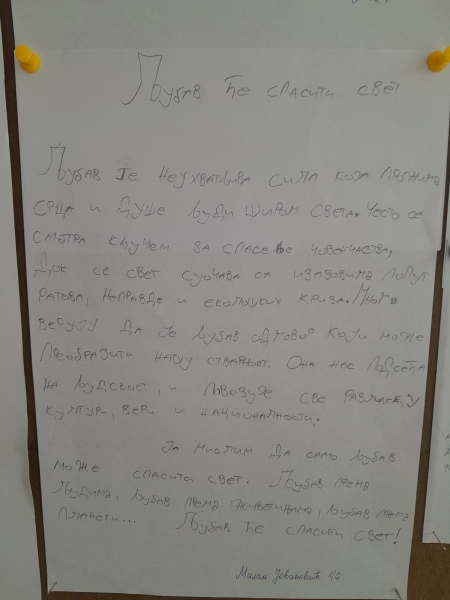 Љубав ће спасити свет
Љубав је неухватљива сила која прожима
срца и душе људи широм света. Често се
сматра кључем за спасење човечанства,
док се свет суочава са изазовима попут
ратова, неправде и еколошких криза. Многи
верују да је љубав одговор који може
преобразити нашу стварност. Она нас подсећа
на људскост, и повезује све разлике, у
култури, вери и националности.
Ја мислим да само љубав
може спасити свет. Љубав према
људима, љубав према животињама, љубав према
планети... Љубав ће спасити свет!
Милан Јовановић 1/6